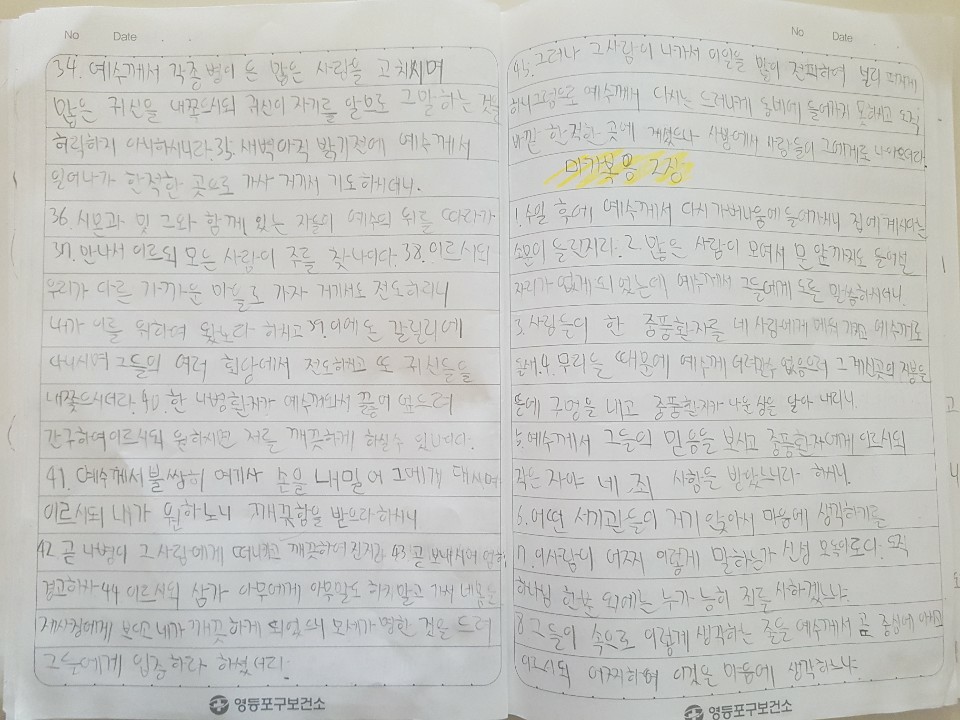 No Date
34. 예수께서 각종 병이 든 많은 사람을 고치시며
많은 귀신을 내쫓으시되 귀신이 자기를 알므로 그 말하는 것을
허락하지 아니하시니라. 35. 새벽 아직 밝기전에 예수께서
일어나가 한적한 곳으로 가사 거기서 기도하시더니.
36. 시몬과 및 그와 함께 있는 자들이 예수의 뒤를 따라가
37. 만나서 이르되 모든 사람이 주를 찾나이다. 38. 이르시되
우리가 다른 가까운 마을로 가자 거기서도 전도하리니
내가 이를 위하여 왔노라 하시고 39. 이에 온 갈릴리에
다니시며 그들의 여러 회당에서 전도하시고 또 귀신들을
내쫓으시더라. 40. 한 나병환자가 예수께 와서 꿇어 엎드려
간구하여 이르되 원하시면 저를 깨끗하게 하실수 있나이다.
41. 예수께서 불쌍히 여기사 손을 내밀어 그에게 대시며
이르시되 내가 원하노니 깨끗함을 받으라 하시니
42. 곧 나병이 그 사람에게 떠나가고 깨끗하여진지라 43. 곧 보내시며 엄히
경고하사 44 이르시되 삼가 아무에게 아무말도 하지말고 가서 네 몸을
제사장에게 보이고 네가 깨끗하게 되었으니 모세가 명한 것을 드려
그들에게 입증하라 하셨더라.
영등포구보건소
No Date
45. 그러나 그 사람이 나가서 이 일을 많이 전파하여 널리 퍼지게
하니 그러므로 예수께서 다시는 드러나게 동네에 들어가지 못하시고 오직
바깥 한적한 곳에 계셨으나 사방에서 사람들이 그에게로 나아오더라.
마가복음 2장
1. 수일 후에 예수께서 다시 가버나움에 들어가시니 집에 계시다는
소문이 들린지라. 2. 많은 사람이 모여서 문 앞까지도 들어설
자리가 없게 되었는데 예수께서 그들에게 도를 말씀하시더니.
3. 사람들이 한 중풍환자를 네 사람에게 메워 가지고 예수께로
올새 4. 무리들 때문에 예수께 데려갈수 없으므로 그 계신곳의 지붕을
뜯어 구멍을 내고 중풍환자가 누운 상을 달아 내리니.
5. 예수께서 그들의 믿음을 보시고 중풍환자에게 이르시되
작은 자야 네 죄 사함을 받았느니라 하시니
6. 어떤 서기관들이 거기 앉아서 마음에 생각하기를
7. 이 사람이 어찌 이렇게 말하는가 신성 모독이로다. 오직
하나님 한분 외에는 누가 능히 죄를 사하겠느냐.
8 그들이 속으로 이렇게 생각하는 줄을 예수께서 곧 중심에 아시고
이르시되 어찌하여 이것을 마음에 생각하느냐.
영등포구보건소